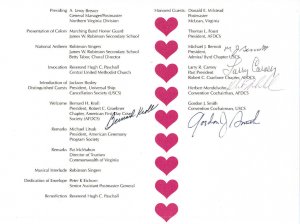 Presiding A. Leroy Beeson
General Manager/Postmaster
Northern Virginia Division
Presentation of Colors Marching Band Honor Guard
James W. Robinson Secondary School
National Anthem Robinson Singers
James W. Robinson Secondary School
Betty Tolino, Choral Director
Invocation Reverend Hugh C. Paschall
Central United Methodist Church
Introduction of Jackson Bosley
Distinguished Guests President, Universal Ship
Cancellation Society (USCS)
Welcome Bernard H.
Chapter, American First Day
Cover Society (AFDCS)
Remarks Michael Litvak
President, American Ceremony
Program Society
Remarks Pat McMahon
Director of Tourism
Commonwealth of Virginia
Musical Interlude Robinson Singers
Dedication of Envelope Peter K Eichorn
Senior Assistant Postmaster General
Benediction Reverend Hugh C. Paschall
Honored Guests Donald E. Wilstead
Postmaster
McLean, Virginia
Thomas L. Foust
President, AFDCS
Michael J. Bennett
President
Admiral Byrd Chapter USCS
Larry R. Carney
Past President
Robert C. Graebner Chapter
(AFDCS)
Herbert
Convention Cochairman, USCS
Gordon J. Smith
Convention Cochairman,
(AFDCS)
M J Bennett
Larry Carney
Gordon J Smith